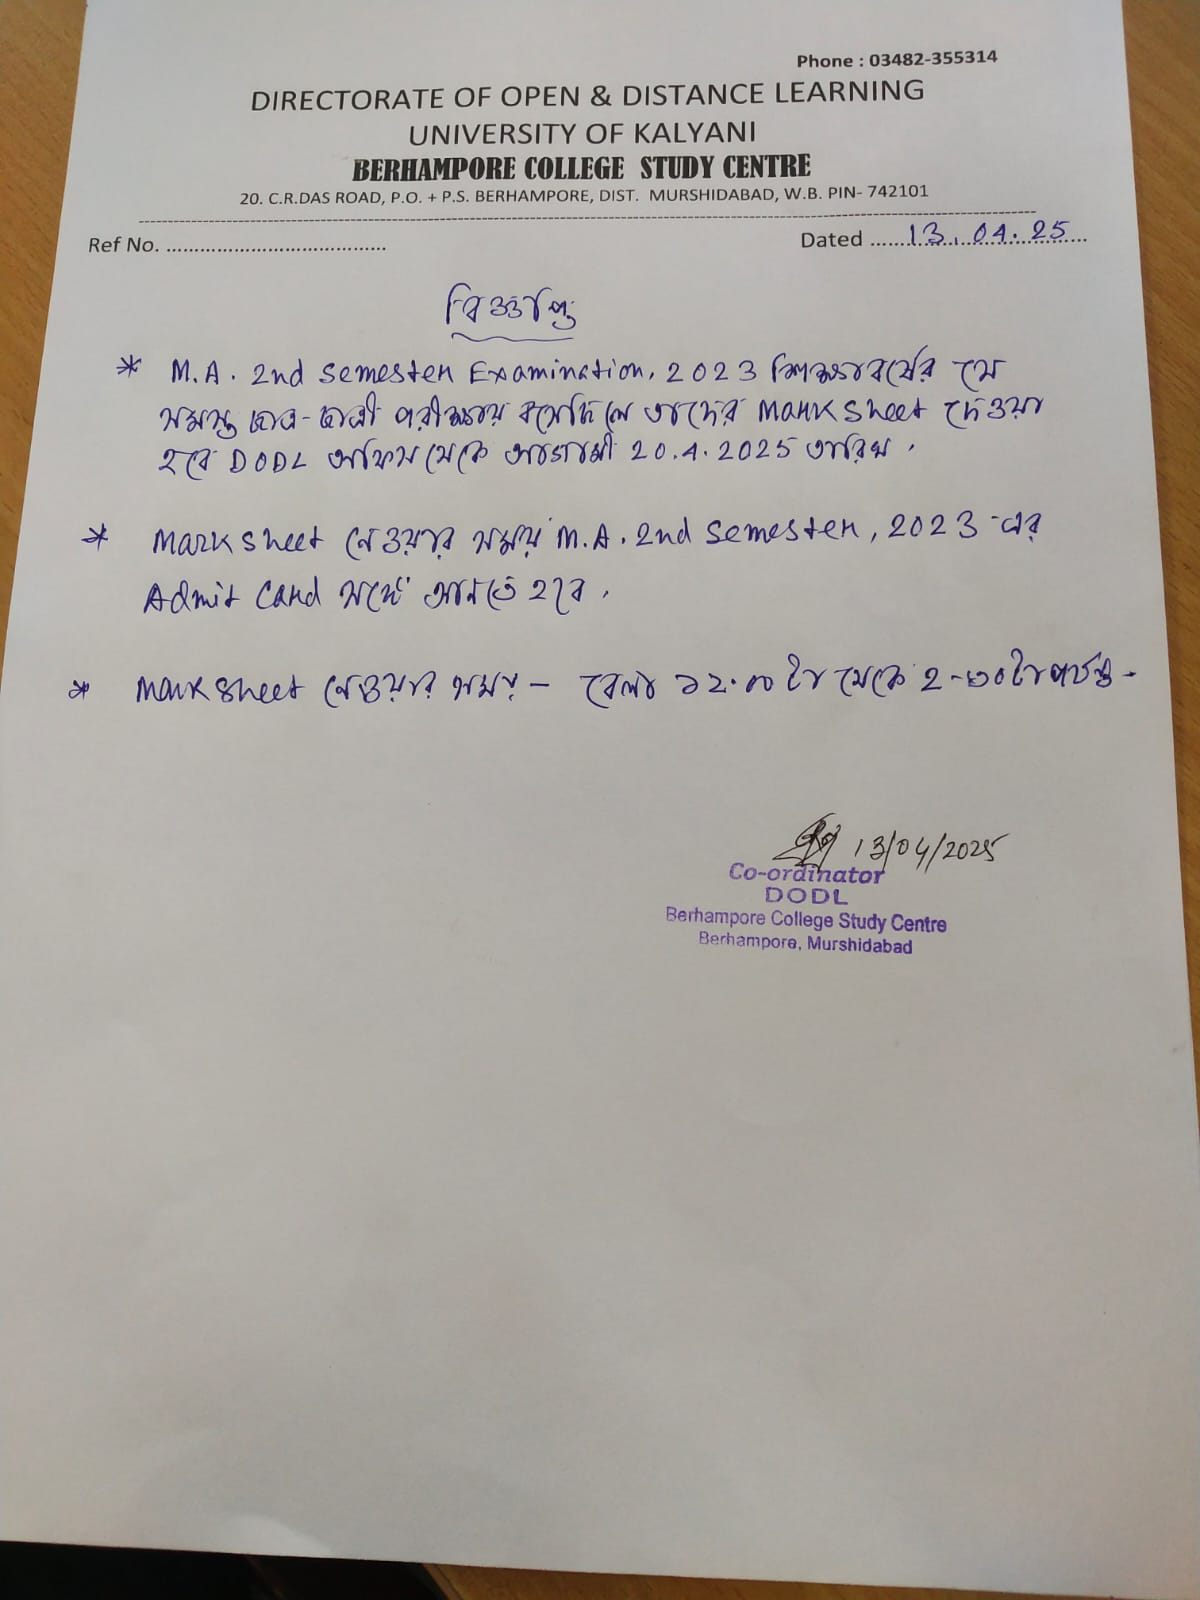 Phone : 03482-355314
DIRECTORATE OF OPEN & DISTANCE LEARNING
UNIVERSITY OF KALYANI
BERHAMPORE COLLEGE STUDY CENTRE
20. C.R.DAS ROAD, P.O. + P.S. BERHAMPORE, DIST. MURSHIDABAD, W.B. PIN- 742101
Ref No. ....................................... Dated ......13.04.25...
বিজ্ঞপ্তি
* M.A. 2nd Semester Examination, 2023 শিক্ষাবর্ষের যে
সমস্ত ছাত্র-ছাত্রী পরীক্ষায় বসেছিলে তাদের Mark Sheet দেওয়া
হবে DODL অফিস থেকে আগামী 20.4.2025 তারিখ.
* Mark Sheet নেওয়ার সময় M.A. 2nd Semester, 2023-এর
Admit Card সঙ্গে আনতে হবে.
* Mark Sheet নেওয়ার সময় - বেলা ১২.০০ টা থেকে 2-৩০ টা পর্যন্ত-
13/04/2025
Co-ordinator
DODL
Berhampore College Study Centre
Berhampore, Murshidabad